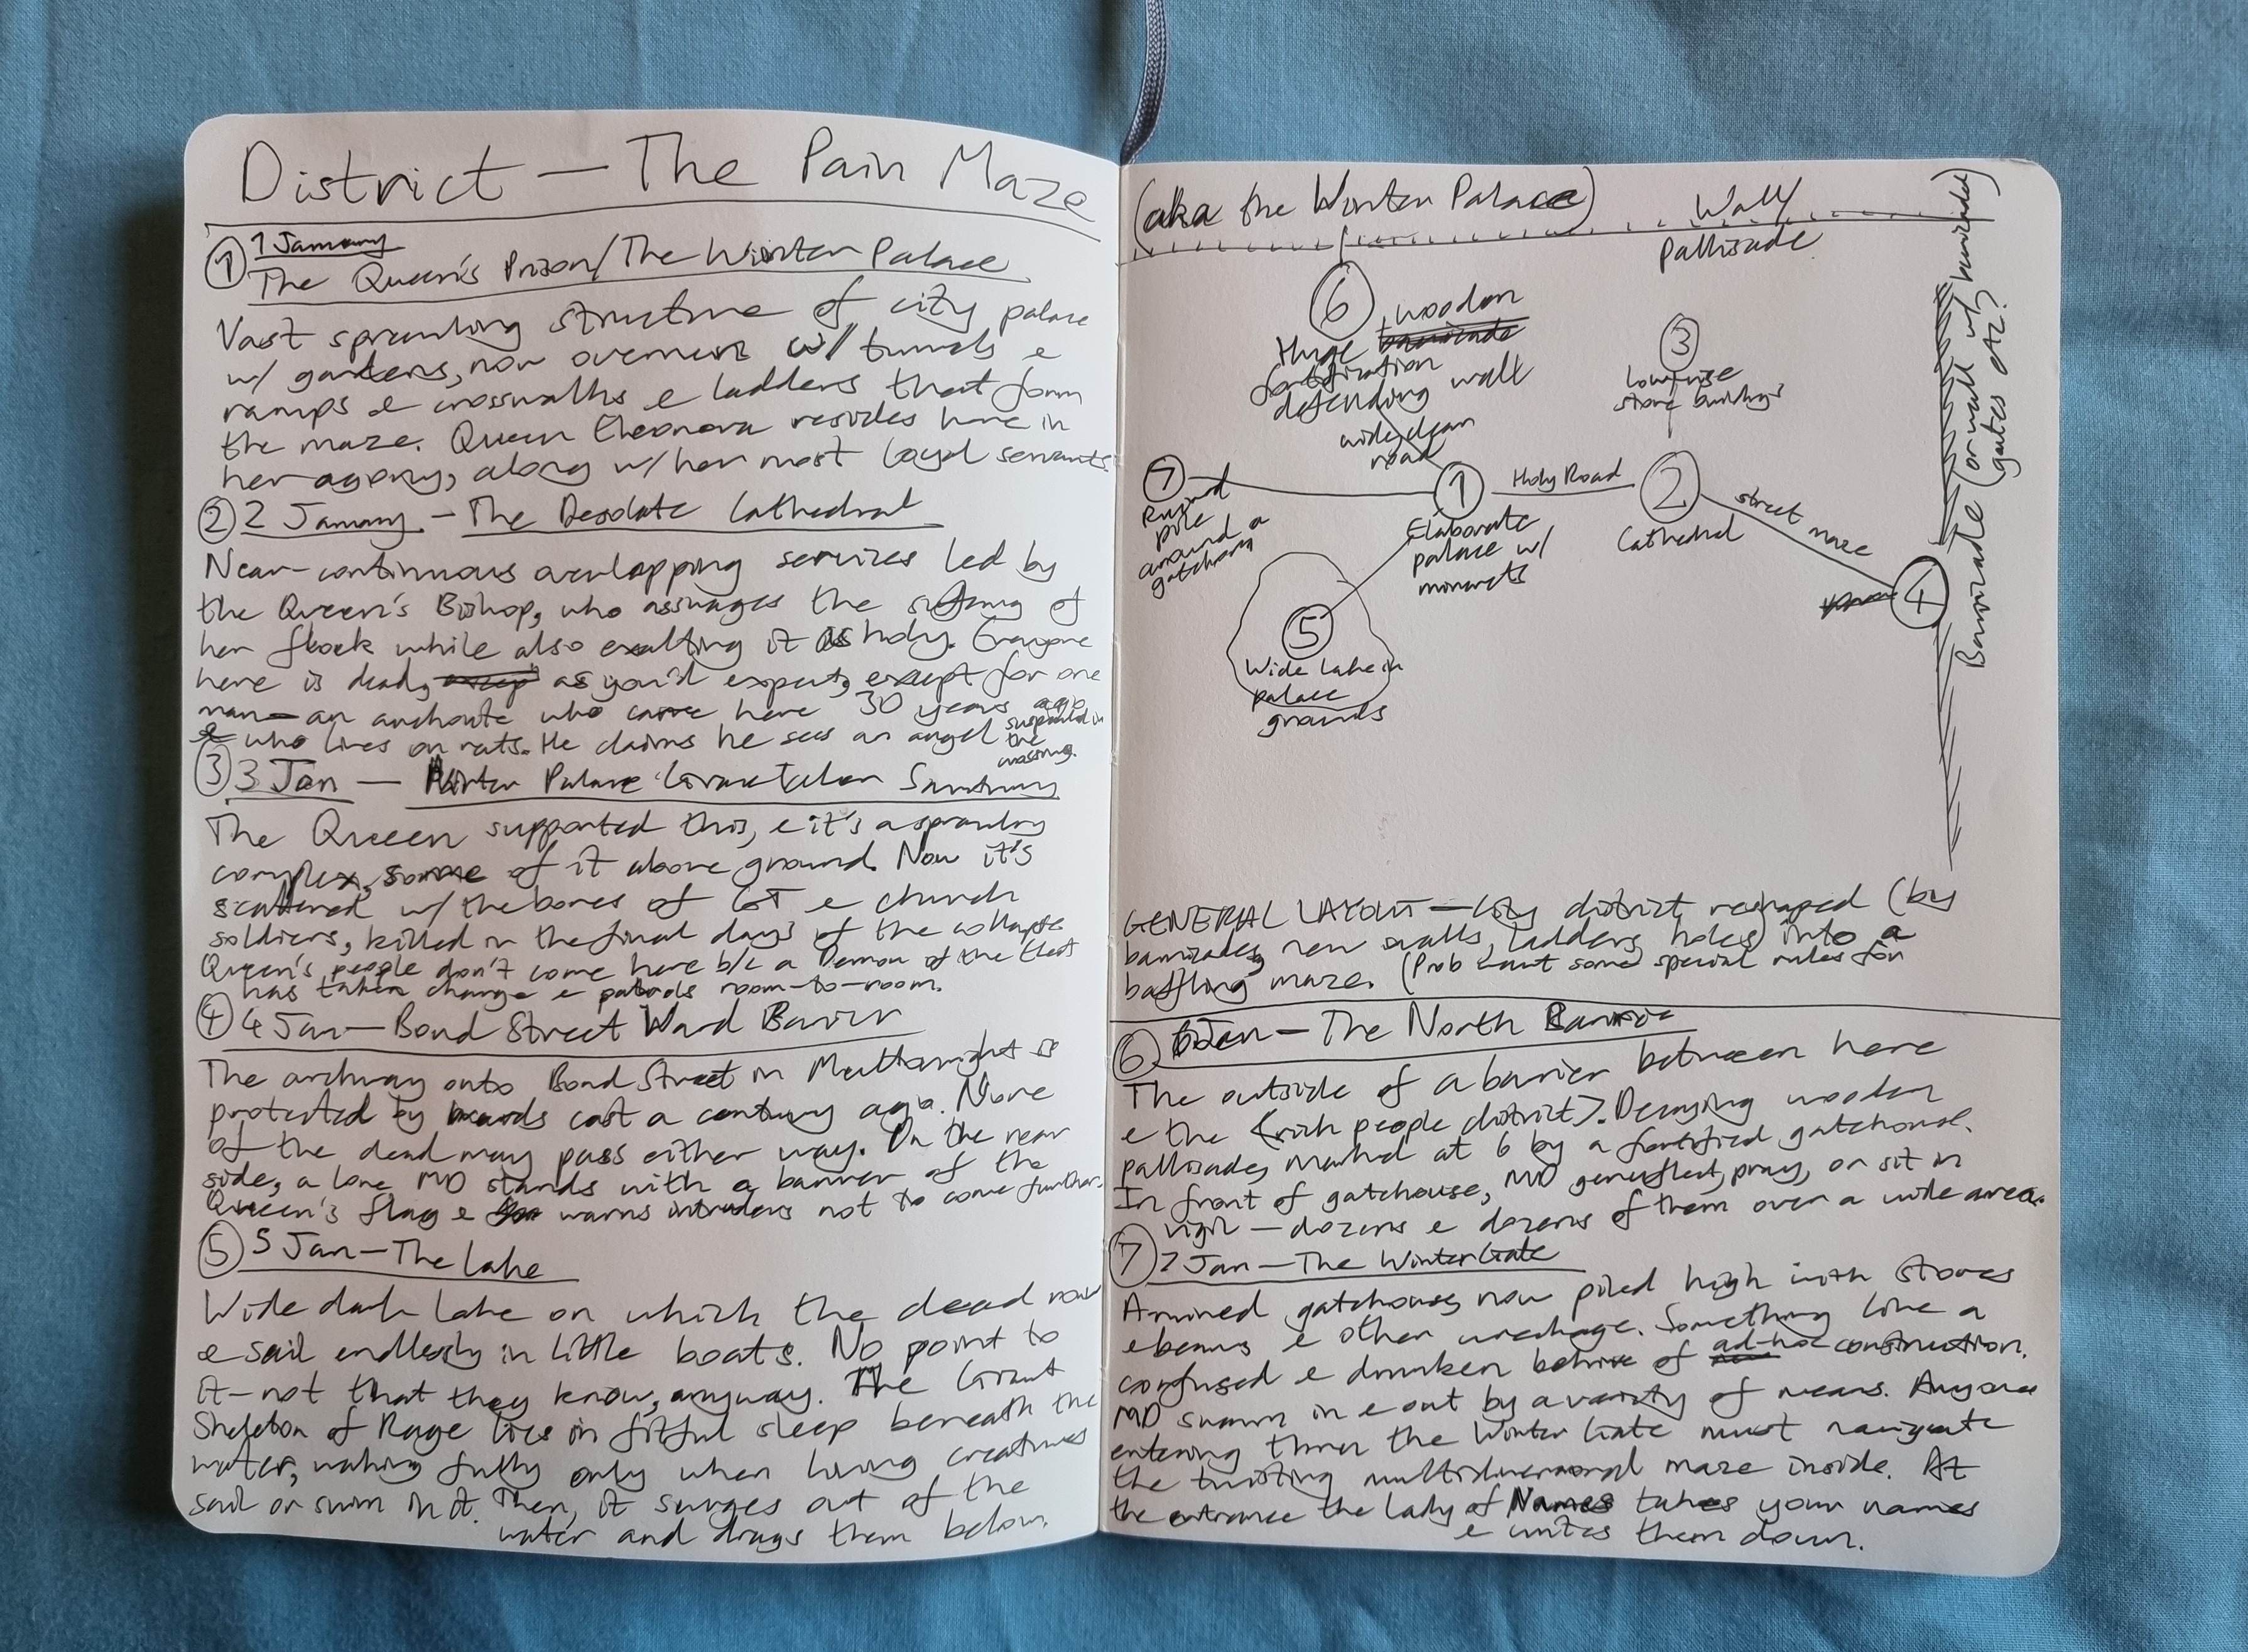 District — The Pain Maze
① 1 January
The Queen's Prison/The Winter Palace
Vast sprawling structure of city palace
w/ gardens, now overrun w/ tunnels e
ramps e crosswalks e ladders that form
the maze. Queen Eleonora resides here in
her agony, along w/ her most loyal servants
② 2 January - The Desolate Cathedral
Near-continuous overlapping services led by
the Queen's Bishop, who assuages the suffering of
her flock while also exalting it as holy. Everyone
here is dead, as you'd expect, except for one
man — an anchorite who came here 30 years ago
e who lives on rats. He claims he sees an angel suspended in
the
crossing.
③ 3 Jan — Winter Palace Gravetaker Sanctuary
The Queen supported this, e it's a sprawling
complex, some of it above ground. Now it's
scattered w/ the bones of GT e church
soldiers, killed in the final days of the collapse
Queen's people don't come here b/c a Demon of the
has taken charge e patrols room-to-room.
④ 4 Jan — Bond Street Ward Barrier
The archway onto Bond Street in is
protected by wards cast a century ago. None
of the dead may pass either way. On the near
side, a lone MD stands with a banner of the
Queen's flag e warns intruders not to come further.
⑤ 5 Jan — The Lake
Wide dark lake on which the dead row
e sail endlessly in little boats. No point to
it — not that they know, anyway. The Giant
Skeleton of Rage lies in fitful sleep beneath the
water, waking fully only when living creatures
sail or swim in it. Then, it surges out of the
water and drags them below.
(aka the Winter Palace)
Wall/
Pallisade
⑥
wooden
Huge
fortification
defending wall
wide clean
road
③
low-rise
stone buildings
⑦
Ruined
pile
around a
gatehouse
①
Holy Road
②
Elaborate
palace w/
minarets
Cathedral
street maze
④
Barricade (or wall w/ barricaded
gates etc.)
⑤
Wide Lake in
palace
grounds
GENERAL LAYOUT — City district reshaped (by
barricades, new walls, ladders, holes) into a
baffling maze. (Prob want some special rules for
baffling maze.
⑥ 6 Jan — The North Barrier
The outside of a barrier between here
e the <rich people district>. Decaying wooden
pallisade, marked at 6 by a fortified gatehouse.
In front of gatehouse, MD genuflect, pray, or sit in
vigil — dozens e dozens of them over a wide area.
⑦ 7 Jan — The Winter Gate
A ruined gatehouse, now piled high with stones
e beams e other wreckage. Something like a
confused e drunken behive of ad-hoc construction.
MD swarm in e out by a variety of means. Anyone
entering thru the Winter Gate must navigate
the twisting multidimensional maze inside. At
the entrance the Lady of Names takes your names
e writes them down.